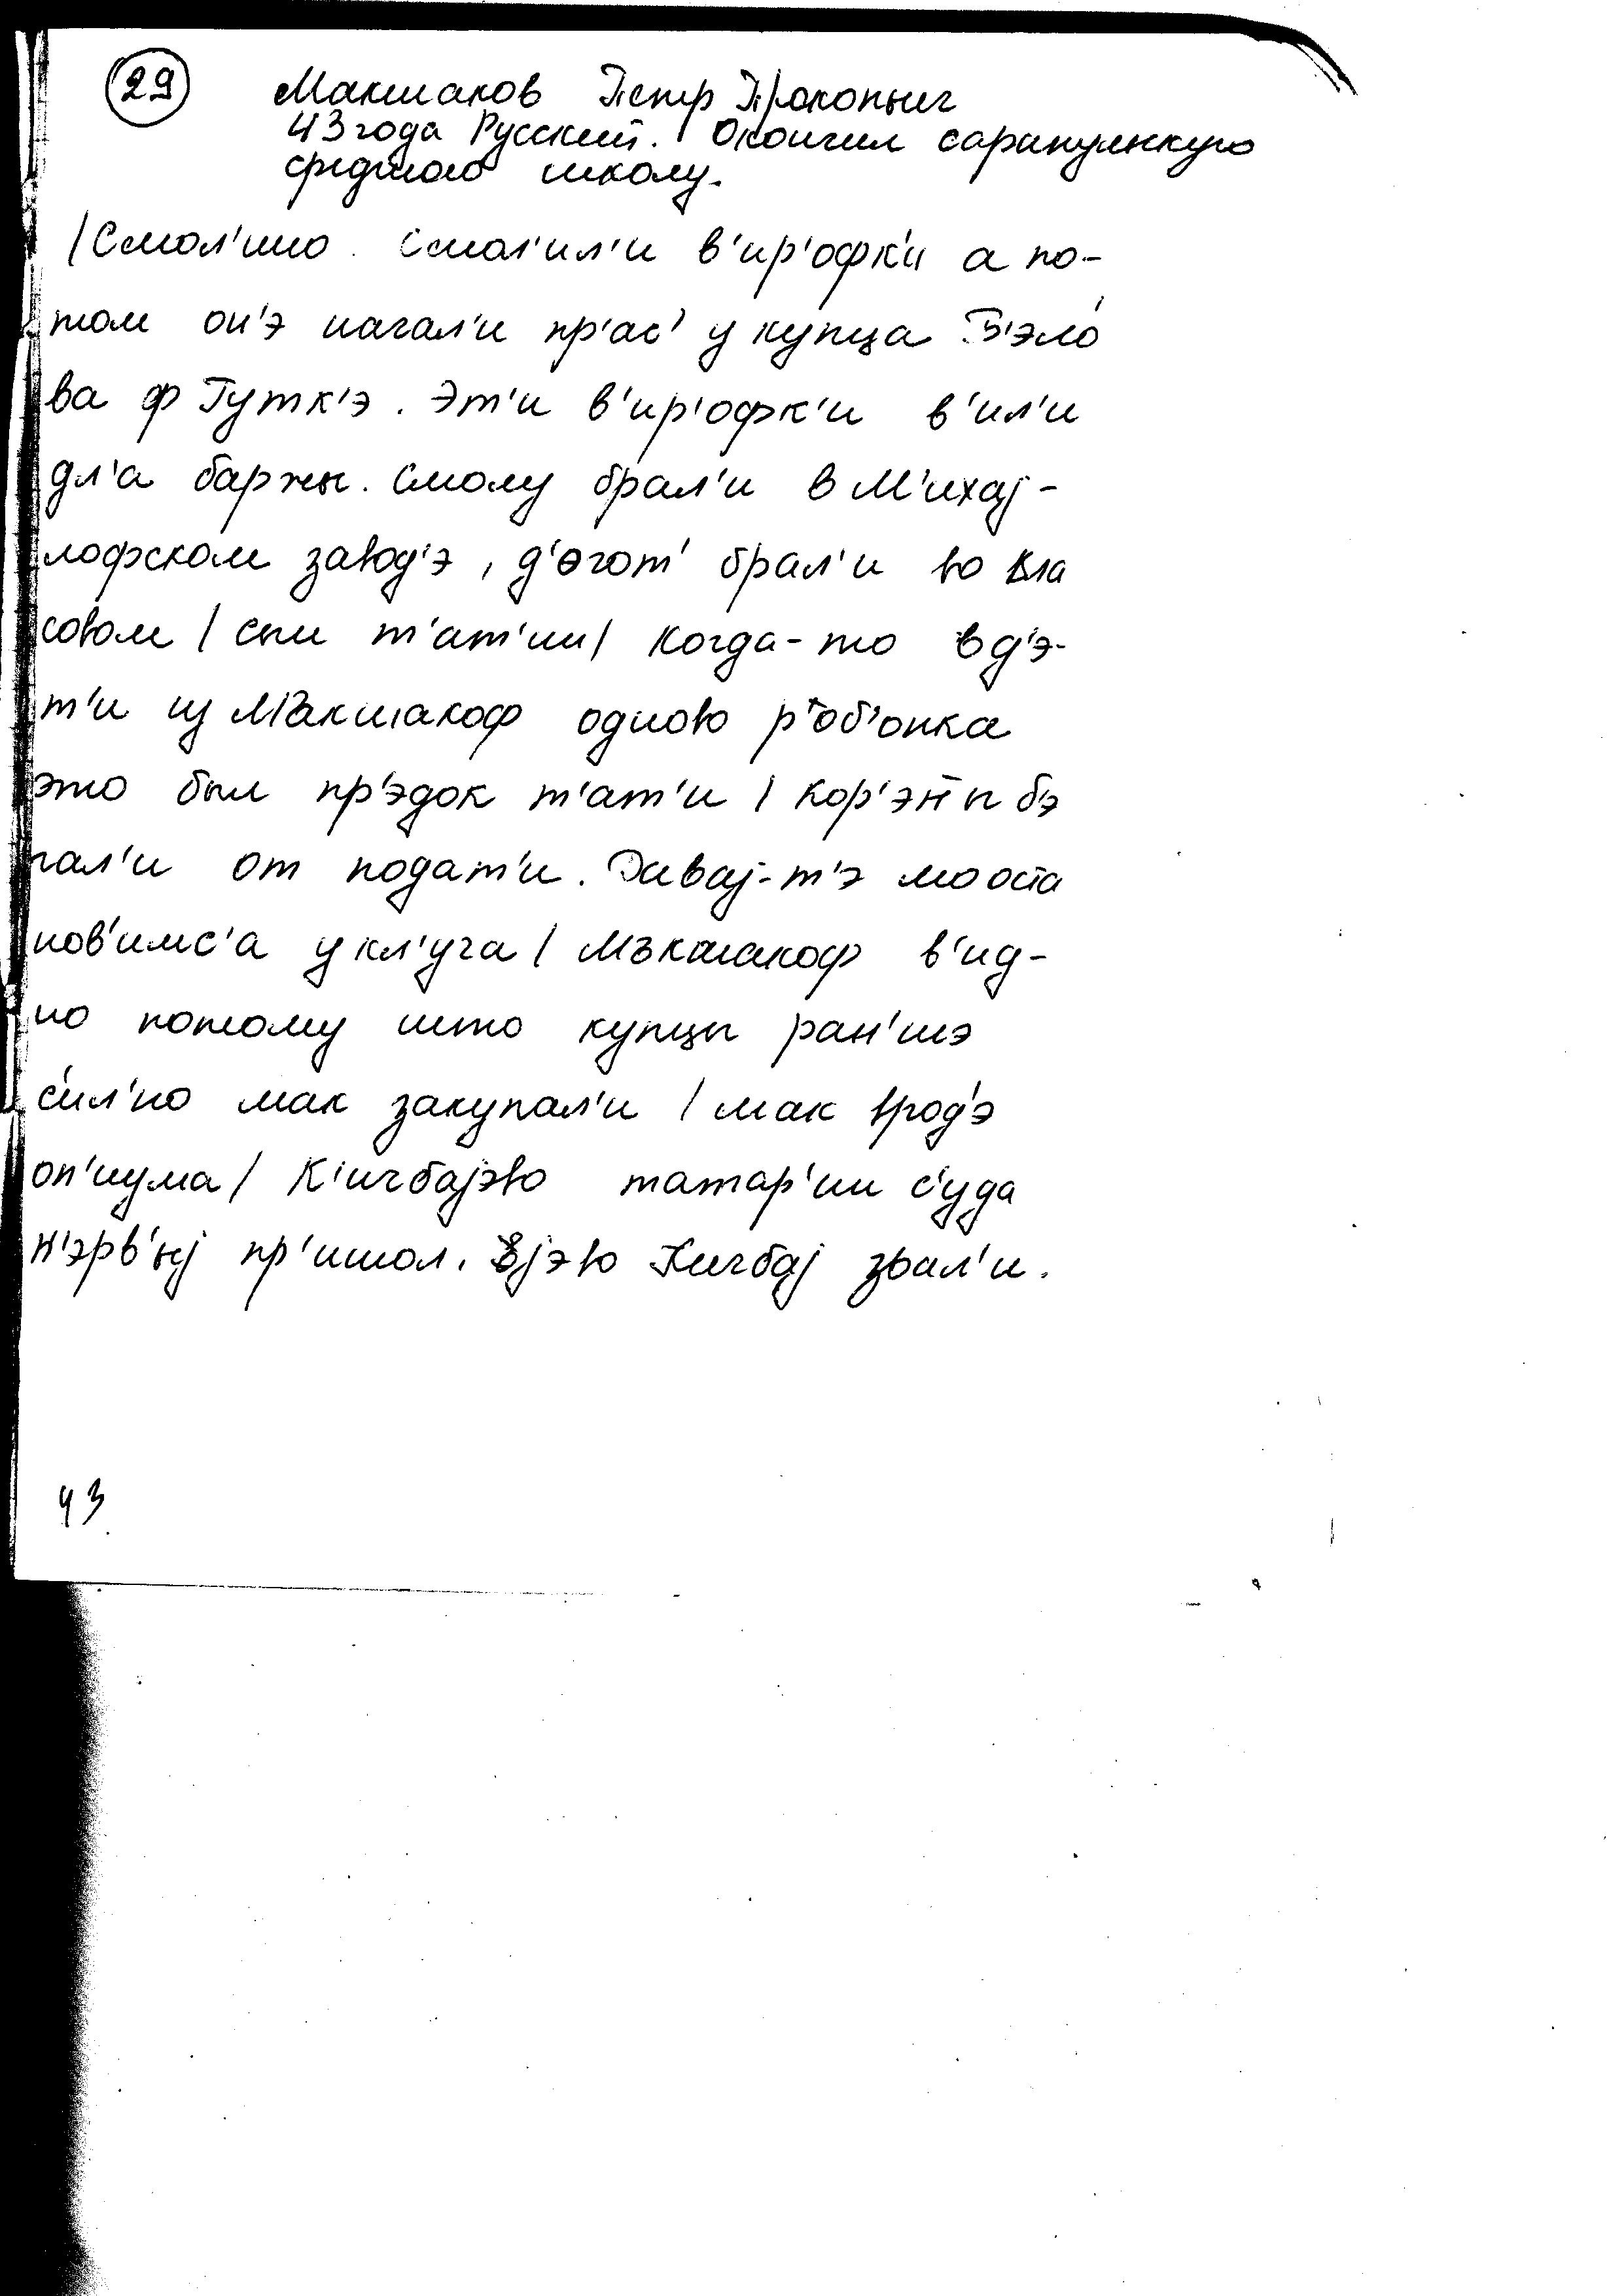 29 Макшаков Петр Прокопыч
43 года Русский. Окончил сарапульскую
среднюю школу.
/Смол'ино. Смол'ил'и в'ир'офк'и а по-
том он'э начал'и пр'ас' у купца Б'эло
ва ф Гутк'э. Эт'и в'ир'офк'и в'ил'и
дл'а баржы. Смолу брал'и в М'ихај-
лофском завод'э, д'огот' брал'и во Вла
совом / сын т'ат'ин/ когда-то в д'э-
т'и из Макшакоф одново р'об'онка
это был пр'эдок т'ат'и / кор'эн'
гал'и от подат'и. Давај-т'э мо оста
нов'имс'а у кл'уча / Мъкшакоф в'ид-
но потому што купцы ран'шэ
с'ил'но мак закупал'и / мак врод'э
оп'иума/ К'ичбајэво татар'ин с'уда
п'эрв'иј пр'ишол. јэво Кичбај звал'и.
43